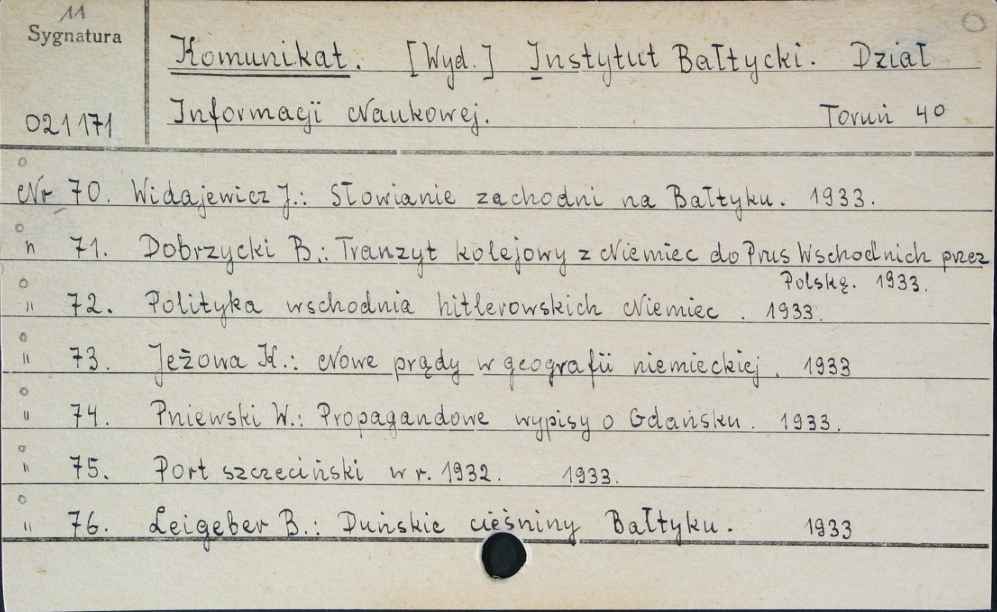 11
Sygnatura
Komunikat. [Wyd.] Instytut Bałtycki. Dział
Informacji Naukowej. Toruń 40
021171
Nr 70. Widajewicz J.: Słowianie zachodni na Bałtyku. 1933.
" 71. Dobrzycki B.: Tranzyt kolejowy z Niemiec do Prus Wschodnich przez
Polskę. 1933.
" 72. Polityka wschodnia hitlerowskich Niemiec. 1933.
" 73. Jeżowa K.: Nowe prądy w geografii niemieckiej. 1933
" 74. Pniewski W.: Propagandowe wypisy o Gdańsku. 1933.
" 75. Port szczeciński w r. 1932. 1933.
" 76. Leigeber B.: Duńskie cieśniny Bałtyku. 1933